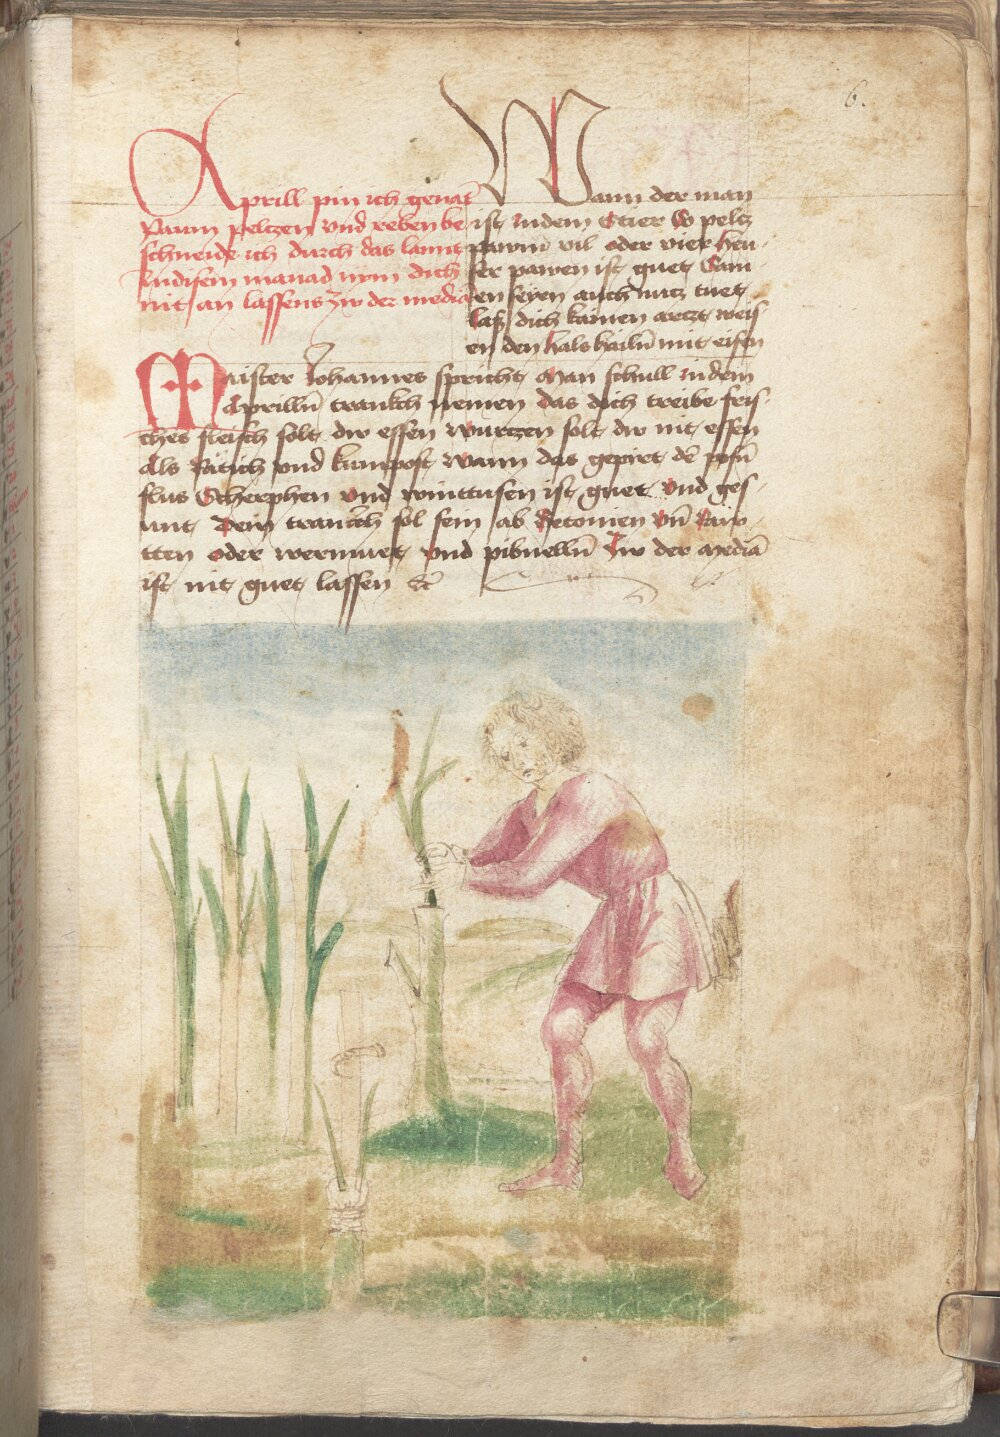 6.
Aprill pin ich genāt
Paum peltzen vnd reben be
schneide ich durch das lannt
Indisem manad nym dich
nit an lassens zw der media
Wann der man
ist Indem Stier So peltz
pawm vil oder vier heu
ser pawen ist guet Sam
en seyen auch nutz tuet
lass dich kainen artzt weis
en den hals hailn mit eisen
Maister Johannes spricht Man schull indem
Aprilln tranckh nemen das dich treibe fris
ches fleisch solt dw essen wurtzen solt dw nit essen
Als Rätich vnd kumpost Wann das gepirt dē posn̄
flus Scherphen vnd vinttusen ist guet vnd ges
unt Dein tranckh sol sein ab Betonien vn̄ Raw
tten oder wermuet vnd pibnelln̄ Zw der Mediā
ist nit guet lassen Etc